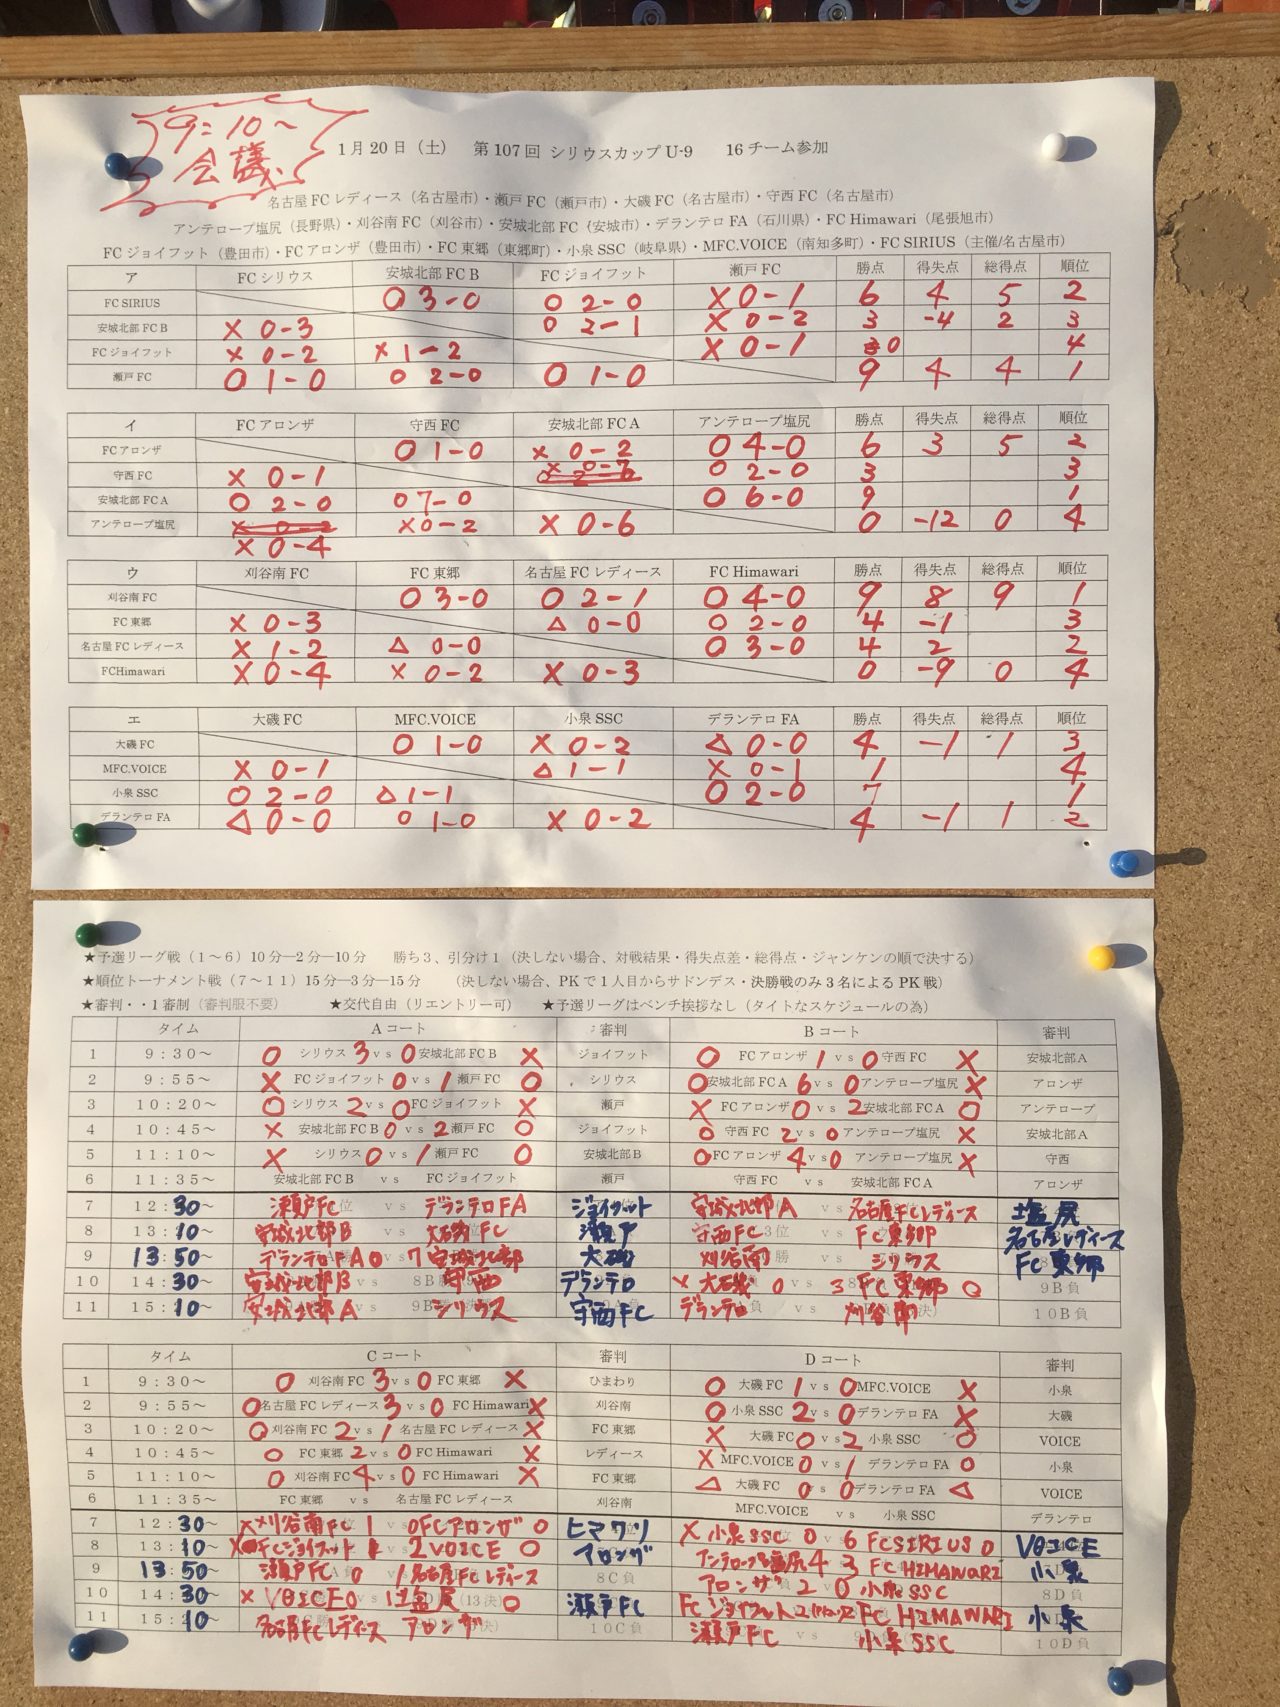 9:10～
会議
1月20日（土） 第107回 シリウスカップU-9 16チーム参加
名古屋FCレディース（名古屋市）・瀬戸FC（瀬戸市）・大磯FC（名古屋市）・守西FC（名古屋市）
アンテロープ塩尻（長野県）・刈谷南FC（刈谷市）・安城北部FC（安城市）・デランテロFA（石川県）・FC Himawari（尾張旭市）
FCジョイフット（豊田市）・FCアロンザ（豊田市）・FC東郷（東郷町）・小泉SSC（岐阜県）・MFC.VOICE（南知多町）・FC SIRIUS（主催/名古屋市）
ア FCシリウス 安城北部FC B FCジョイフット 瀬戸FC 勝点 得失点 総得点 順位
FC SIRIUS ○ 3-0 ○ 2-0 × 0-1 6 4 5 2
安城北部FC B × 0-3 ○ 2-1 × 0-2 3 -4 2 3
FCジョイフット × 0-2 × 1-2 × 0-1 0 4
瀬戸FC ○ 1-0 ○ 2-0 ○ 1-0 9 4 4 1
イ FCアロンザ 守西FC 安城北部FC A アンテロープ塩尻 勝点 得失点 総得点 順位
FCアロンザ ○ 1-0 × 0-2 ○ 4-0 6 3 5 2
守西FC × 0-1 × 0-7 ○ 2-0 3 3
安城北部FC A ○ 2-0 ○ 7-0 ○ 6-0 9 1
アンテロープ塩尻 × 0-2 × 0-2 × 0-6 0 -12 0 4
× 0-4
ウ 刈谷南FC FC東郷 名古屋FCレディース FC Himawari 勝点 得失点 総得点 順位
刈谷南FC ○ 3-0 ○ 2-1 ○ 4-0 9 8 9 1
FC東郷 × 0-3 △ 0-0 ○ 2-0 4 -1 3
名古屋FCレディース × 1-2 △ 0-0 ○ 3-0 4 2 2
FCHimawari × 0-4 × 0-2 × 0-3 0 -9 0 4
エ 大磯FC MFC.VOICE 小泉SSC デランテロFA 勝点 得失点 総得点 順位
大磯FC ○ 1-0 × 0-2 △ 0-0 4 -1 1 3
MFC.VOICE × 0-1 △ 1-1 × 0-1 1 4
小泉SSC ○ 2-0 △ 1-1 ○ 2-0 7 1
デランテロFA △ 0-0 ○ 1-0 × 0-2 4 -1 1 2
★予選リーグ戦（1～6）10分―2分―10分 勝ち3、引分け1（決しない場合、対戦結果・得失点差・総得点・ジャンケンの順で決する）
★順位トーナメント戦（7～11）15分―3分―15分 （決しない場合、PKで1人目からサドンデス・決勝戦のみ3名によるPK戦）
★審判・・1審制（審判服不要） ★交代自由（リエントリー可） ★予選リーグはベンチ挨拶なし（タイトなスケジュールの為）
タイム Aコート 審判 Bコート 審判
1 9:30～ ○ シリウス 3 vs 0 安城北部FC B × ジョイフット ○ FCアロンザ 1 vs 0 守西FC × 安城北部A
2 9:55～ × FCジョイフット 0 vs 1 瀬戸FC ○ シリウス ○ 安城北部FC A 6 vs 0 アンテロープ塩尻 × アロンザ
3 10:20～ ○ シリウス 2 vs 0 FCジョイフット × 瀬戸 × FCアロンザ 0 vs 2 安城北部FC A ○ アンテロープ
4 10:45～ × 安城北部FC B 0 vs 2 瀬戸FC ○ ジョイフット ○ 守西FC 2 vs 0 アンテロープ塩尻 × 安城北部A
5 11:10～ × シリウス 0 vs 1 瀬戸FC ○ 安城北部B ○ FCアロンザ 4 vs 0 アンテロープ塩尻 × 守西
6 11:35～ 安城北部FC B vs FCジョイフット 瀬戸 守西FC vs 安城北部FC A アロンザ
7 12:30～ 瀬戸FC 位 vs デランテロFA ジョイフット 安城北部A 名古屋FCレディース 塩尻
8 13:10～ 安城北部B 大磯FC 瀬戸 守西FC 3位 FC東郷 名古屋レディース
9 13:50～ デランテロFA 0 7 安城北部 大磯 刈谷南 勝 シリウス FC東郷
10 14:30～ 安城北部B 8B 守西 デランテロ × 大磯 0 3 FC東郷 ○ 9B負
11 15:10～ 安城北部A 9B シリウス 守西FC デランテロ 負 vs 刈谷南 10B負
タイム Cコート 審判 Dコート 審判
1 9:30～ ○ 刈谷南FC 3 vs 0 FC東郷 × ひまわり ○ 大磯FC 1 vs 0 MFC.VOICE × 小泉
2 9:55～ ○ 名古屋FCレディース 3 vs 0 FC Himawari × 刈谷南 ○ 小泉SSC 2 vs 0 デランテロFA × 大磯
3 10:20～ ○ 刈谷南FC 2 vs 1 名古屋FCレディース × FC東郷 × 大磯FC 0 vs 2 小泉SSC ○ VOICE
4 10:45～ ○ FC東郷 2 vs 0 FC Himawari × レディース × MFC.VOICE 0 vs 1 デランテロFA ○ 小泉
5 11:10～ ○ 刈谷南FC 4 vs 0 FC Himawari × FC東郷 △ 大磯FC 0 vs 0 デランテロFA △ VOICE
6 11:35～ FC東郷 vs 名古屋FCレディース 刈谷南 MFC.VOICE vs 小泉SSC デランテロ
7 12:30～ × 刈谷南FC 1 FCアロンザ ○ ヒマワリ × 小泉SSC 0 6 FCSIRIUS ○ VOICE
8 13:10～ × FCジョイフット 2 VOICE ○ アロンザ アンテロープ塩尻 4 3 FC HIMAWARI 小泉
9 13:50～ 瀬戸FC 0 1 名古屋FCレディース 8C負 アロンザ 2 0 小泉SSC 8D負
10 14:30～ × VOICE 0 1 塩尻 (13決) ○ 瀬戸FC FCジョイフット 2 FC HIMAWARI 小泉
11 15:10～ 名古屋FCレディース アロンザ 10C負 瀬戸FC vs 小泉SSC 10D負